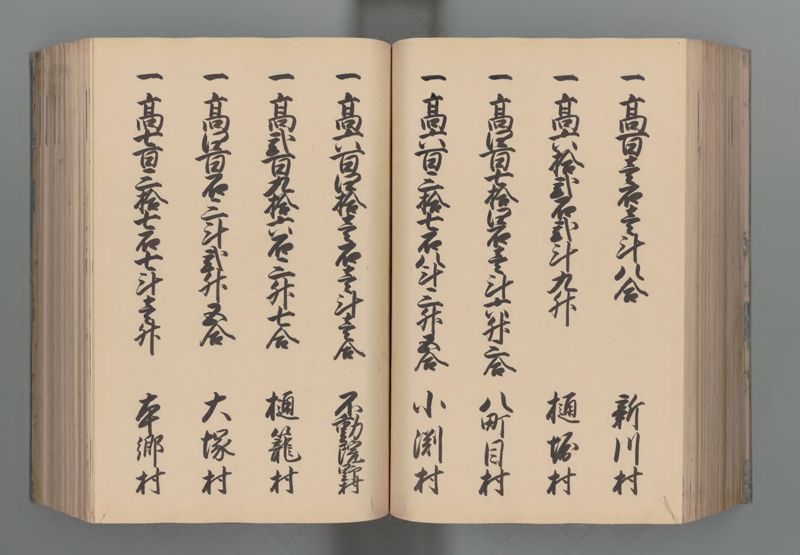 一高百壱石壱斗八合　新川村
一高六拾弐石弐斗九升　樋堀村
一高四百七拾四石壱斗六升三合　八町目村
一高六百三拾七石八斗三升五合　小渕村
一高六百四拾壱石壱斗壱合　不動院野村
一高弐百九拾六石三升七合　樋籠村
一高四百石三斗弐升五合　大塚村
一高七百三拾七石七斗壱升　本郷村